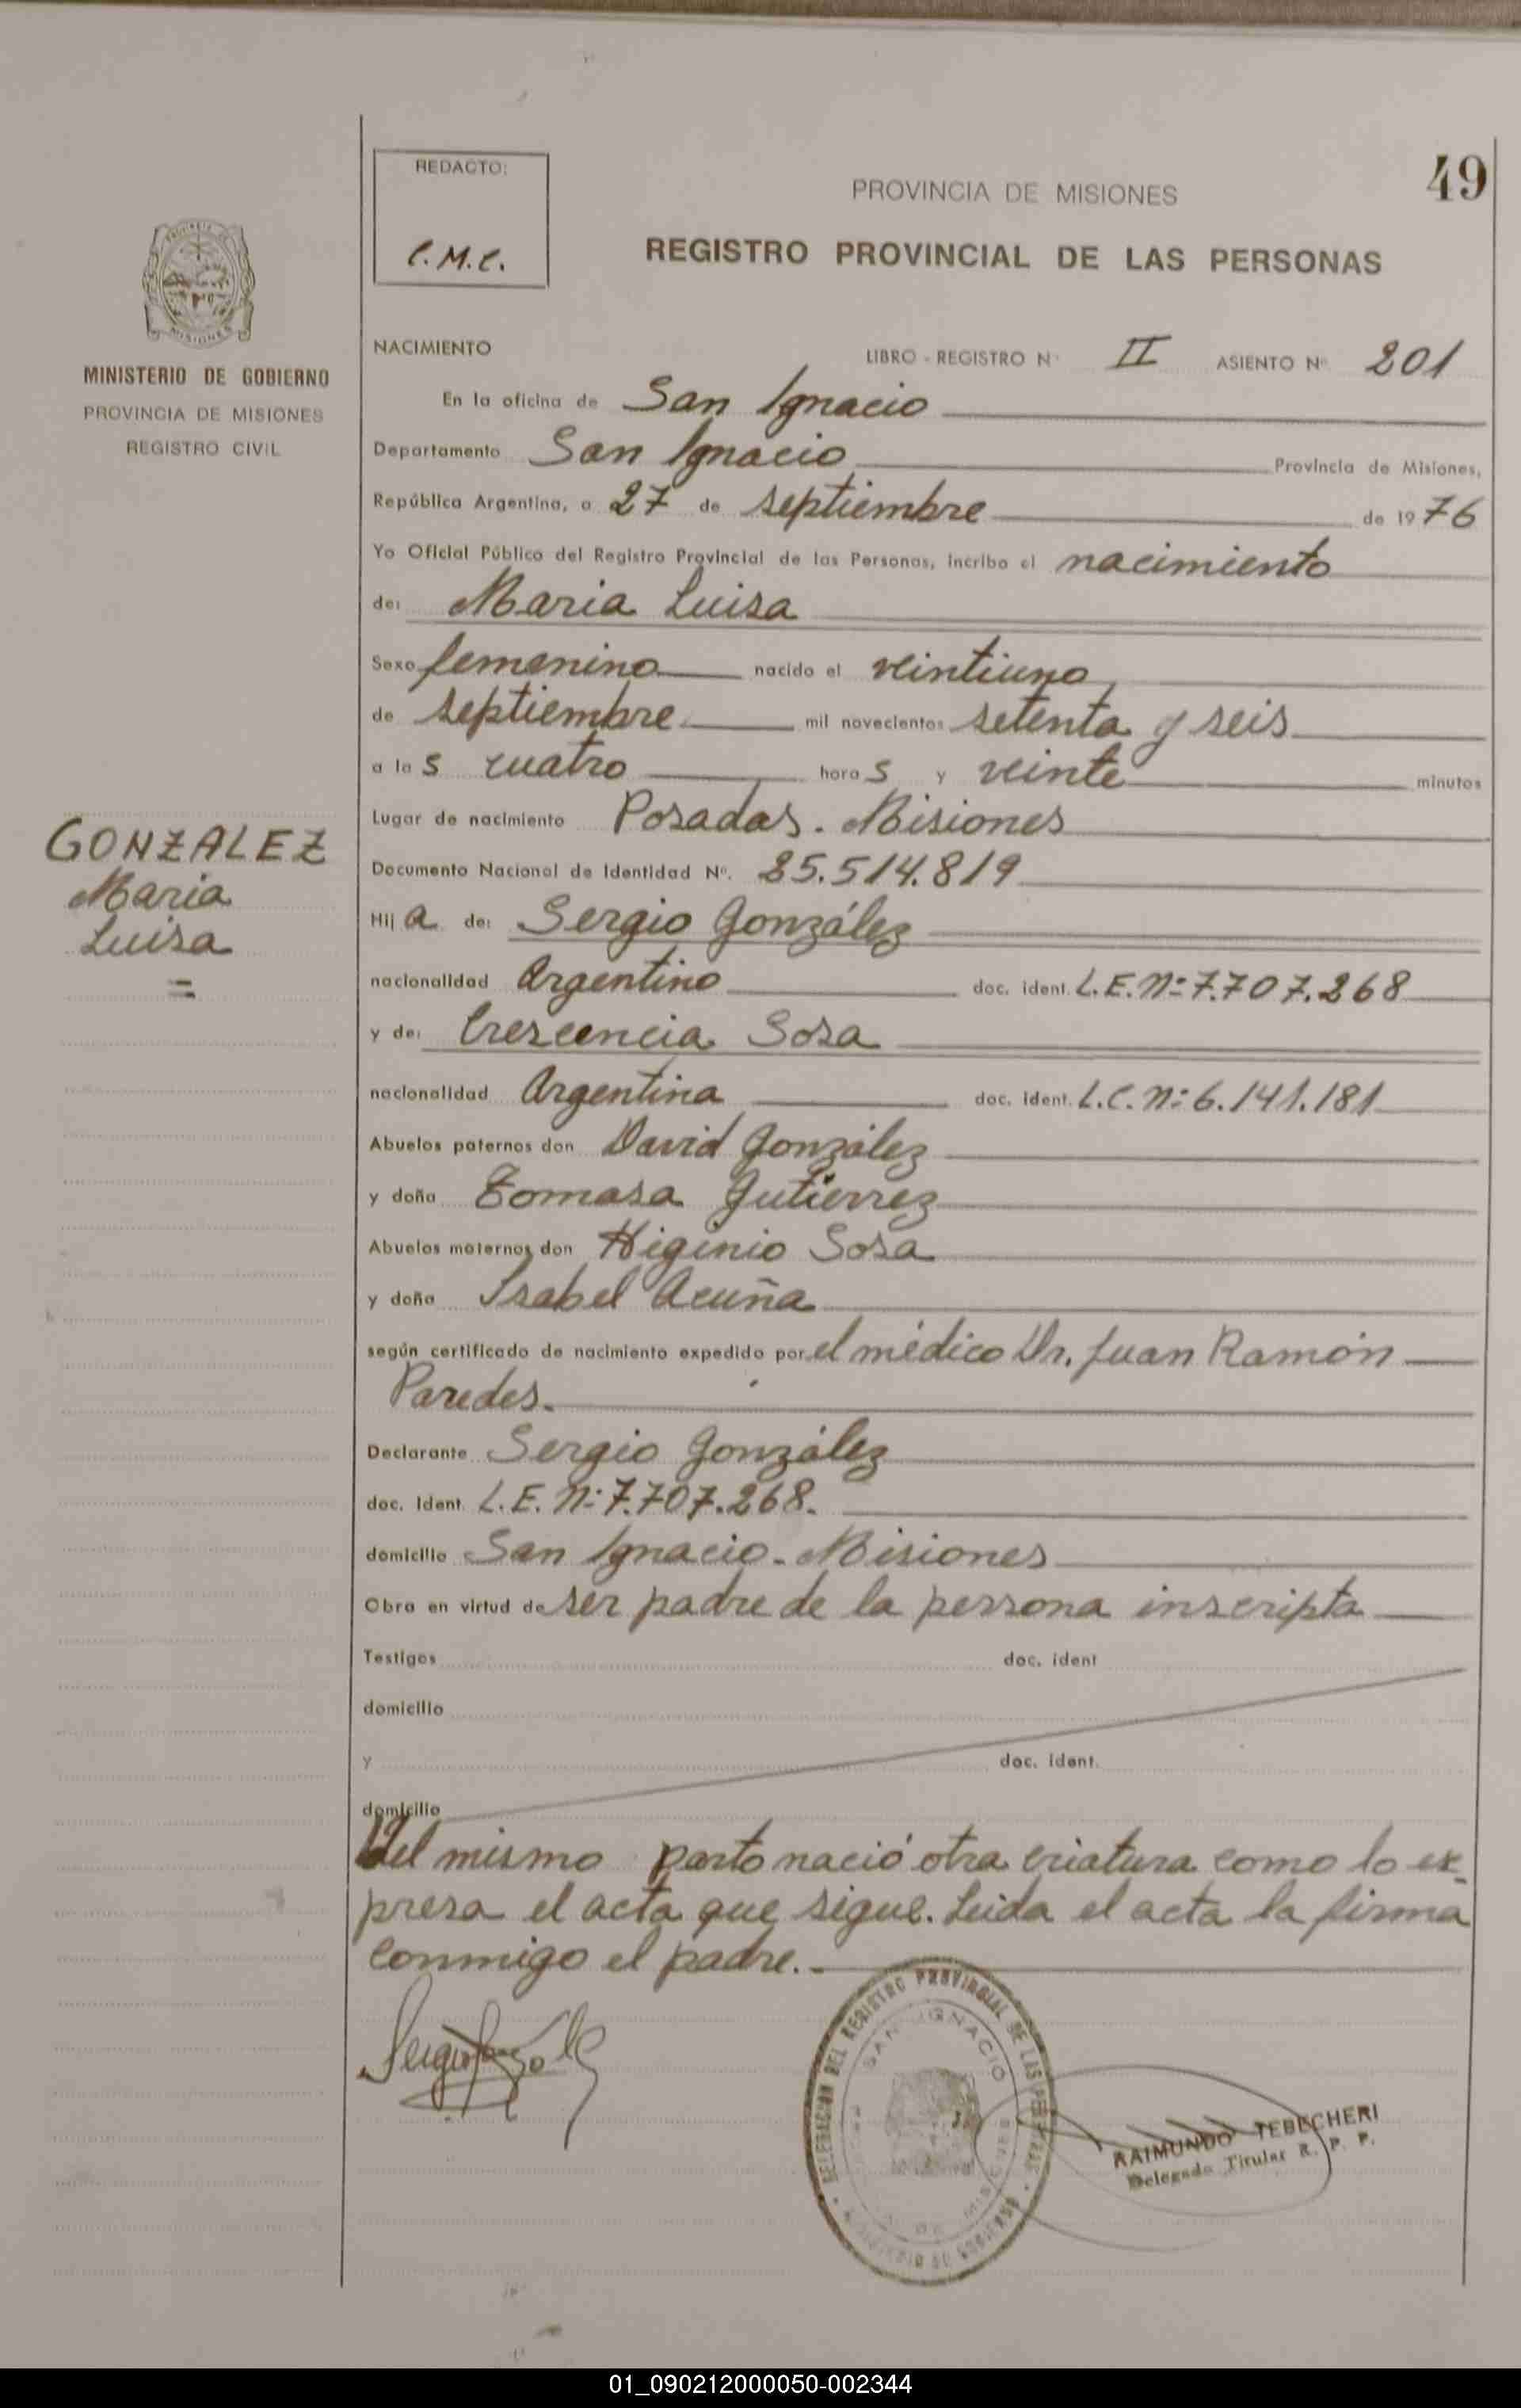 49
REDACTO:
C.M.C.
PROVINCIA DE MISIONES
REGISTRO PROVINCIAL DE LAS PERSONAS
MISIONES
MINISTERIO DE GOBIERNO
PROVINCIA DE MISIONES
REGISTRO CIVIL
NACIMIENTO LIBRO - REGISTRO Nº II ASIENTO Nº 201
En la oficina de San Ignacio
Departamento San Ignacio Provincia de Misiones,
República Argentina, a 27 de septiembre de 1976
Yo Oficial Público del Registro Provincial de las Personas, incribo el nacimiento
de: Maria Luisa
Sexo femenino nacido el veintiuno
de septiembre mil novecientos setenta y seis
a las cuatro horas y veinte minutos
Lugar de nacimiento Posadas. Misiones
GONZALEZ
Maria
Luisa
=
Documento Nacional de Identidad Nº. 25.514.819
Hija de: Sergio González
nacionalidad Argentino doc. ident. L.E. Nº 7.707.268
y de: Crescencia Sosa
nacionalidad Argentina doc. ident. L.C. Nº 6.141.181
Abuelos paternos don David González
y doña Tomasa Gutierrez
Abuelos maternos don Higinio Sosa
y doña Isabel Acuña
según certificado de nacimiento expedido por el médico Dr. Juan Ramón
Paredes.
Declarante Sergio González
doc. Ident. L.E. Nº 7.707.268.
domicilio San Ignacio - Misiones
Obra en virtud de ser padre de la persona inscripta
Testigos doc. ident
domicilio
y doc. ident.
domicilio
Del mismo parto nació otra criatura como lo ex-
presa el acta que sigue. Leida el acta la firma
conmigo el padre. -
DELEGACION DEL REGISTRO PROVINCIAL DE LAS PERSONAS
SAN IGNACIO
MISIONES
MINISTERIO DE GOBIERNO
RAIMUNDO TEBECHERI
Delegado Titular R. P. P.
01_090212000050-002344